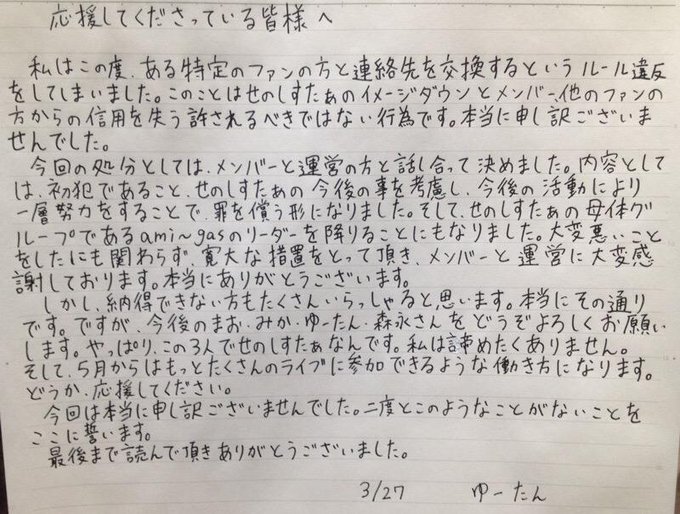 応援してくださっている皆様へ
私はこの度、ある特定のファンの方と連絡先を交換するというルール違反
をしてしまいました。このことはせのしすたぁのイメージダウンとメンバー、他のファンの
方からの信用を失う許されるべきではない行為です。本当に申し訳ございま
せんでした。
今回の処分としては、メンバーと運営の方と話し合って決めました。内容として
は、初犯であること、せのしすたぁの今後の事を考慮し、今後の活動により
一層努力をすることで、罪を償う形になりました。そして、せのしすたぁの母体グ
ループであるami~gasのリーダーを降りることにもなりました。大変悪いこと
をしたにも関わらず、寛大な措置をとって頂き、メンバーと運営に大変感
謝しております。本当にありがとうございます。
しかし、納得できない方もたくさんいらっしゃると思います。本当にその通り
です。ですが、今後のまお・みか・ゆーたん・森永さんをどうぞよろしくお願い
します。やっぱり、この3人でせのしすたぁなんです。私は諦めたくありません。
そして、5月からはもっとたくさんのライブに参加できるような働き方になります。
どうか、応援してください。
今回は本当に申し訳ございませんでした。二度とこのようなことがないことを
ここに誓います。
最後まで読んで頂きありがとうございました。
3/27 ゆーたん